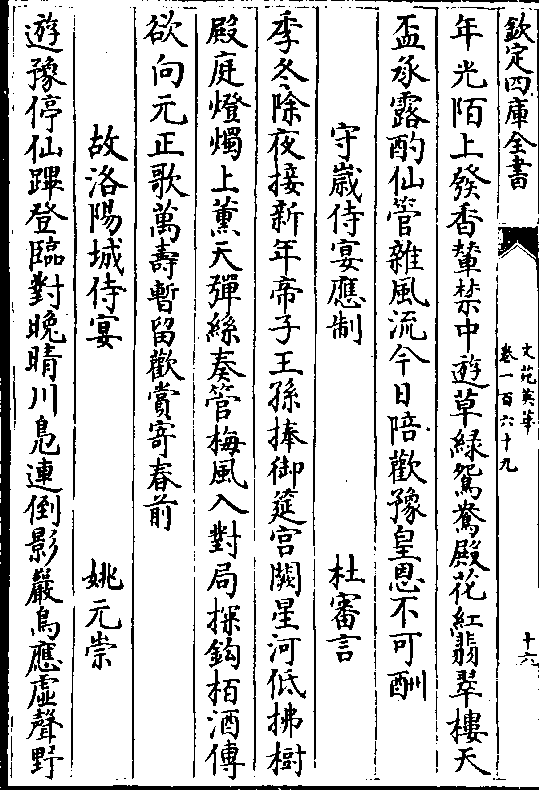 欽定四庫全書
文苑英華
卷一百六十九
十六
年光陌上發香輦禁中遊草綠鴛鴦殿花紅翡翠樓天
盃承露酌仙管雜風流今日陪歡豫皇恩不可酬
守歲侍宴應制 杜審言
季冬除夜接新年帝子王孫捧御筵宫闕星河低拂樹
殿庭燈燭上薰天彈絲奏管梅風入對局探鈎栢酒傳
欲向元正歌萬壽暫留歡賞寄春前
故洛陽城侍宴 姚元崇
遊豫停仙蹕登臨對晚晴川鳬連倒影巖鳥應虛聲野